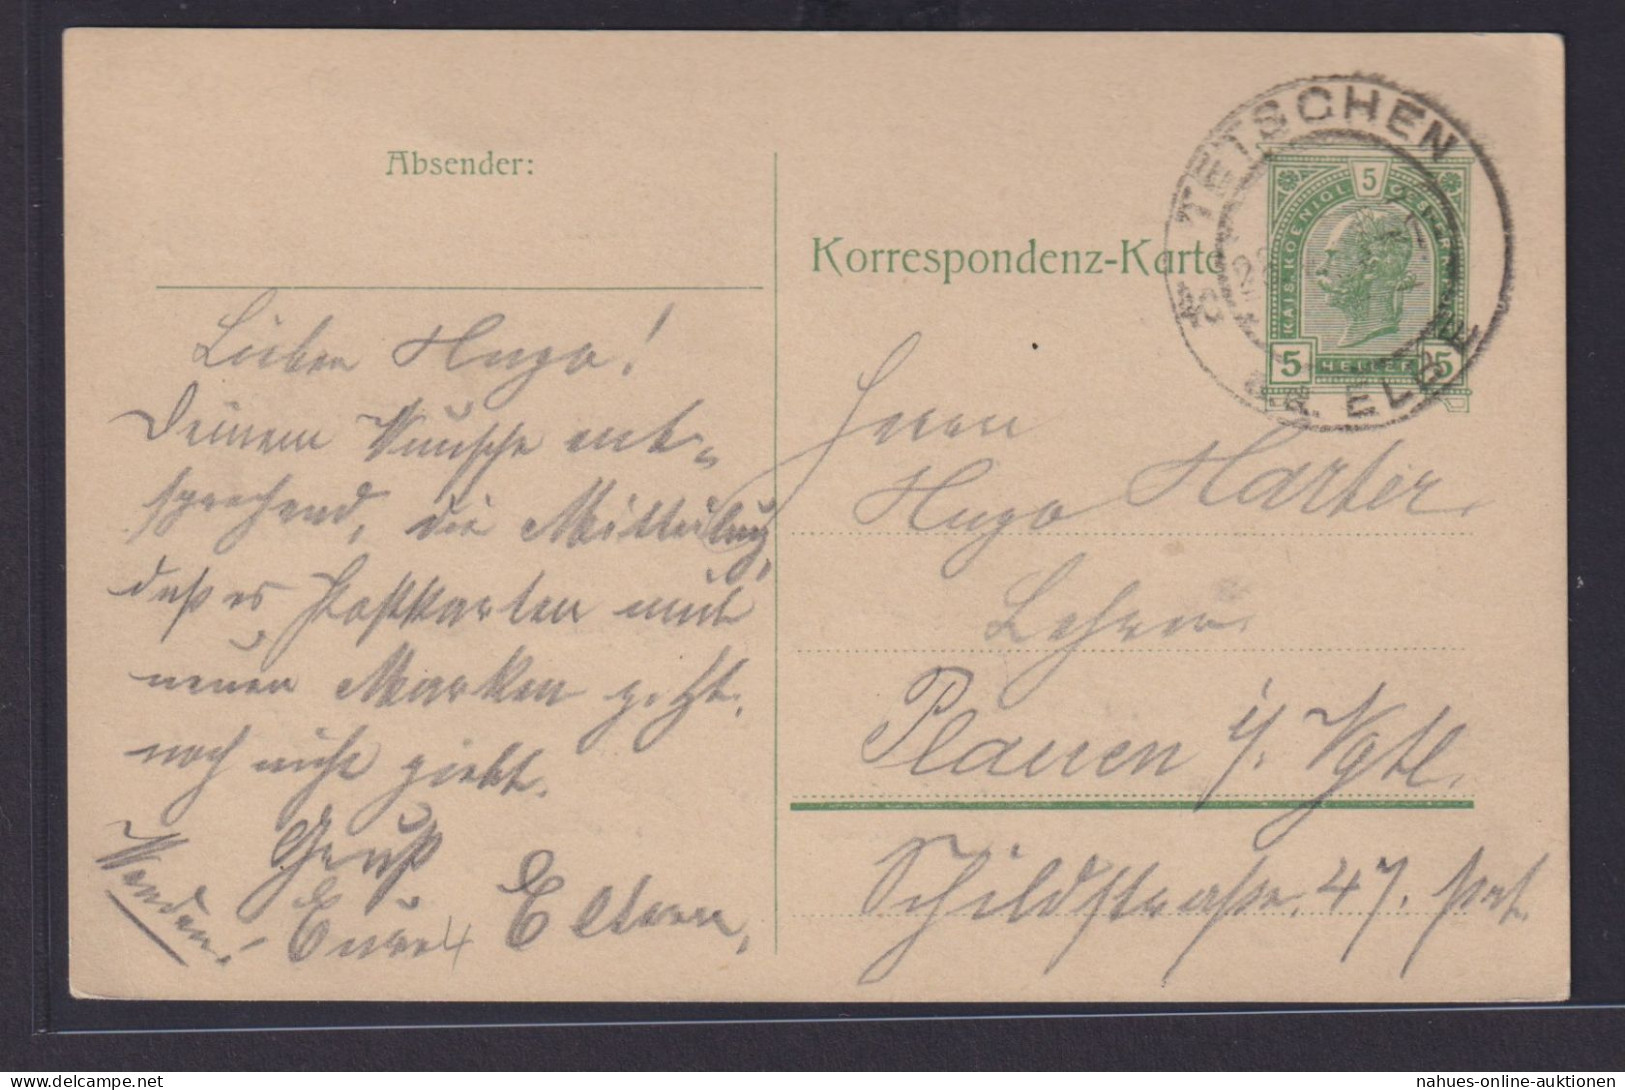 Absender:
Korrespondenz-Karte
TETSCHEN
a.d. ELBE
5
KAIS. KOENIGL. OESTERR.
5 HELLER 5
Lieber Hugo!
Deinem Wunsche ent-
sprechend, die Mitteilung,
daß es Postkarten mit
neuen Marken
noch nicht giebt.
Gruß
Eure Eltern,
Wenden!
Herrn
Hugo Harter.
Lehrer.
Plauen i/. Vgtl.
Schildstraße. 47.
nahues-online-auktionen